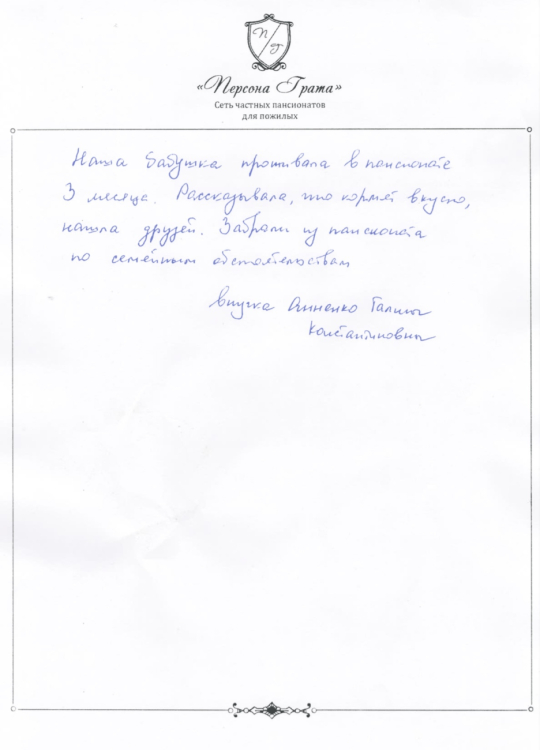 П Г
«Персона Грата»
Сеть частных пансионатов
для пожилых
Наша бабушка проживала в пансионате
3 месяца. Рассказывала, что кормят вкусно,
нашла друзей. Забрали из пансионата
по семейным обстоятельствам
внучка Анненко Галины
Константиновны